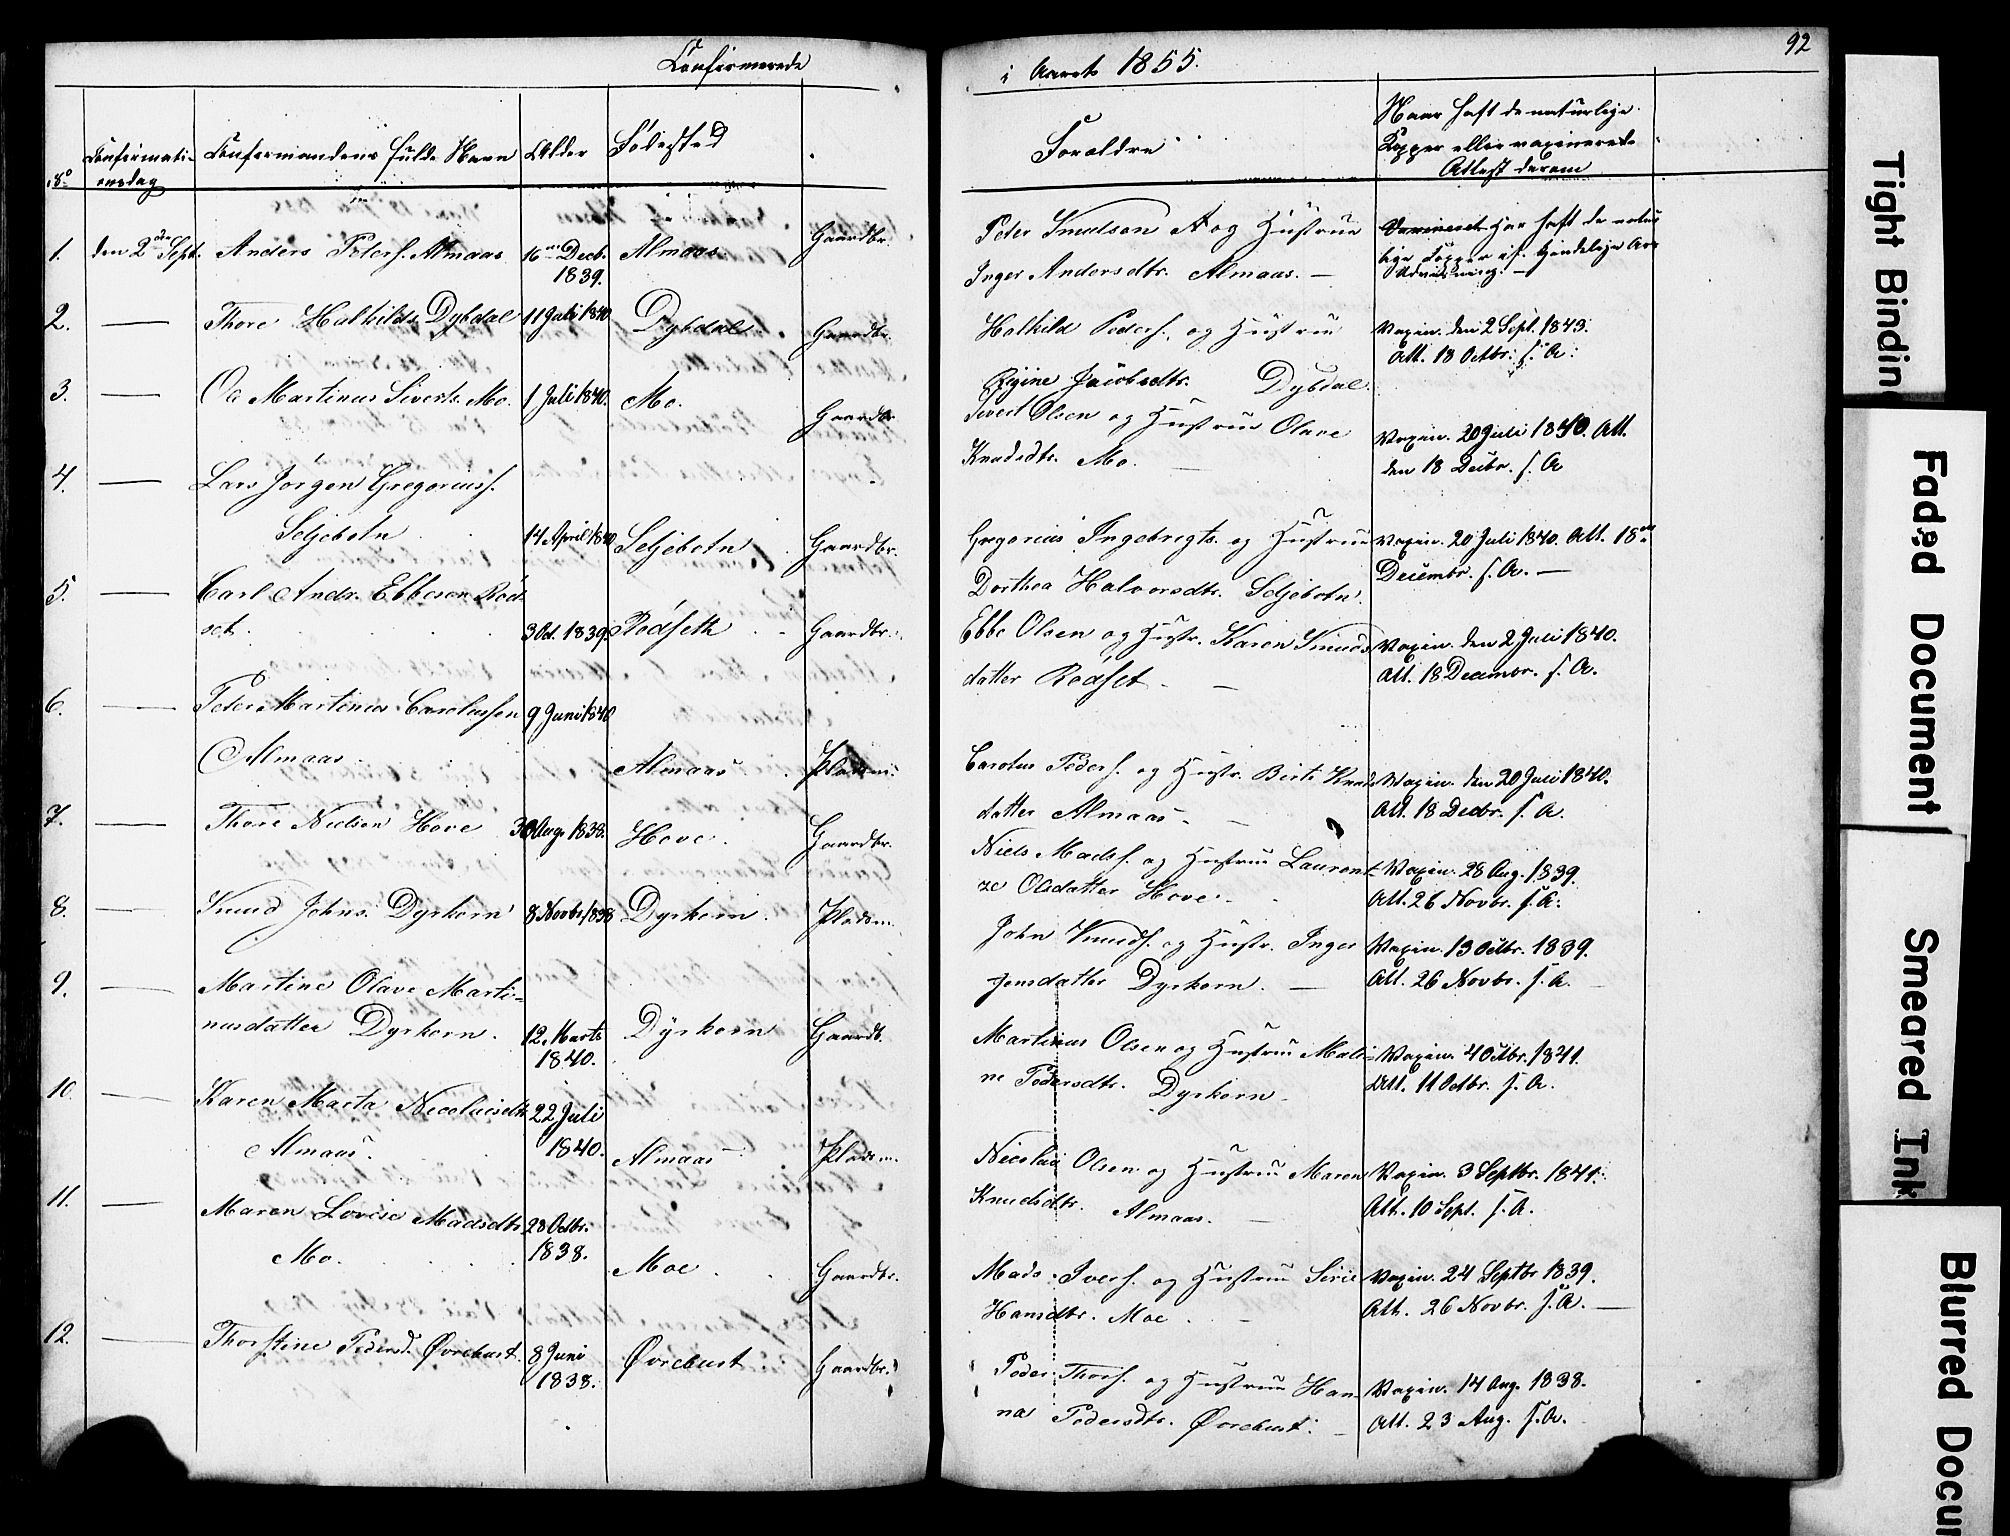 Confirmerede
i Aaret 1855.
92
No
Confirmati-
onsdag
Confirmandens fulde Navn
Alder
Fødested
Forældre
Naar haft de naturlige
Kopper eller vaxinerede
Attest derom
1. den 2den Sept. Anders Peders. Almaas 16 Decb. 1839. Almaas. Gaardbr.
Peter Knudsen A og Hustrue
Inger Andersdtr. Almaas. —
Har haft de natur
lige Kopper
2. — Thore Halkilds. Dybdal 11 Juli 1840 Dybdal Gaardbr.
Halkild Peders. og Hustrue
Regine Jacobsdtr. Dybdal
Vaxin. den 2 Sept. 1843.
Att. 18 Octbr. s. A.
3. — Ole Martinus Siverts. Mo. 1 Juli 1840. Mo. Gaardbr
Sivert Olsen og Hustrue Olave
Knudsdtr. Mo. —
Vaxin. 20 Juli 1840. Att.
den 18 Decbr. s. A
4. — Lars Jørgen Gregorius.
Seljebotn 14 April 1840 Seljebotn Gaardbr.
Gregorius Ingebrigts. og Hustrue
Dorthea Halvorsdtr. Seljebotn.
Vaxin. 20 Juli 1840. Att. 18
Decembr. s. A. —
5. — Carl Andr. Ebbesen Rød-
set. 3 Oct. 1839. Rødseth Gaardbr.
Ebbe Olsen og Hustr. Karen Knuds
datter Rødset. —
Vaxin. den 2 Juli 1840.
Att. 18 Decembr. s. A.
6. — Peter Martinus Carolussen 9 Juni 1840
Almaas. Almaas Pladsm.
Carolus Peders. og Hustr. Berte Knuds
datter Almaas. —
Vaxin. den 20 Juli 1840.
Att. 18 Decbr. s. A.
7. — Thore Nielsen Hove 30 Aug. 1838. Hove. Gaardbr.
Niels Mads. og Hustrue Laurent-
ze Olsdatter Hove.
Vaxin. 28 Aug. 1839.
Att. 26 Novbr. s. A.
8. — Knud Johns. Dyrkorn 8 Novbr 1838 Dyrkorn. Pladsm.
John Knuds. og Hustr. Inger
Jensdatter Dyrkorn. —
Vaxin. 13 Octbr. 1839.
Att. 26 Novbr. s. A.
9. — Martine Olave Marti-
nusdatter Dyrkorn. 12. Marts 1840. Dyrkorn Gaardb.
Martinus Olsen og Hustrue Mali-
ne Pedersdtr. Dyrkorn.
Vaxin. 4 Octbr. 1841.
Att. 11 Octbr. s. A.
10. — Karen Marta Nicolaisdtr 22 Juli
Almaas. 1840. Almaas Pladsm.
Nicolai Olsen og Hustrue Maren
Knudsdtr. Almaas. —
Vaxin. 3 Septbr. 1841.
Att. 10 Sept. s. A.
11. — Maren Lovise Madsdtr. 28 Octbr.
Mo. 1838. Moe Gaardbr.
Mads Ivers. og Hustrue Sirie
Hansdtr. Moe. —
Vaxin. 24 Septbr 1839.
Att. 26 Novbr. s. A. —
12. — Thorstine Pedersd. Øvrebust. 8 Juni 1838. Øvrebust Gaardbr.
Peder Thors. og Hustrue Han-
na Pedersdtr. Øvrebust. —
Vaxin. 14 Aug. 1838.
Att. 23 Aug. s. A.
Tight Bindin
Faded Document
Smeared Ink
Blurred Docu